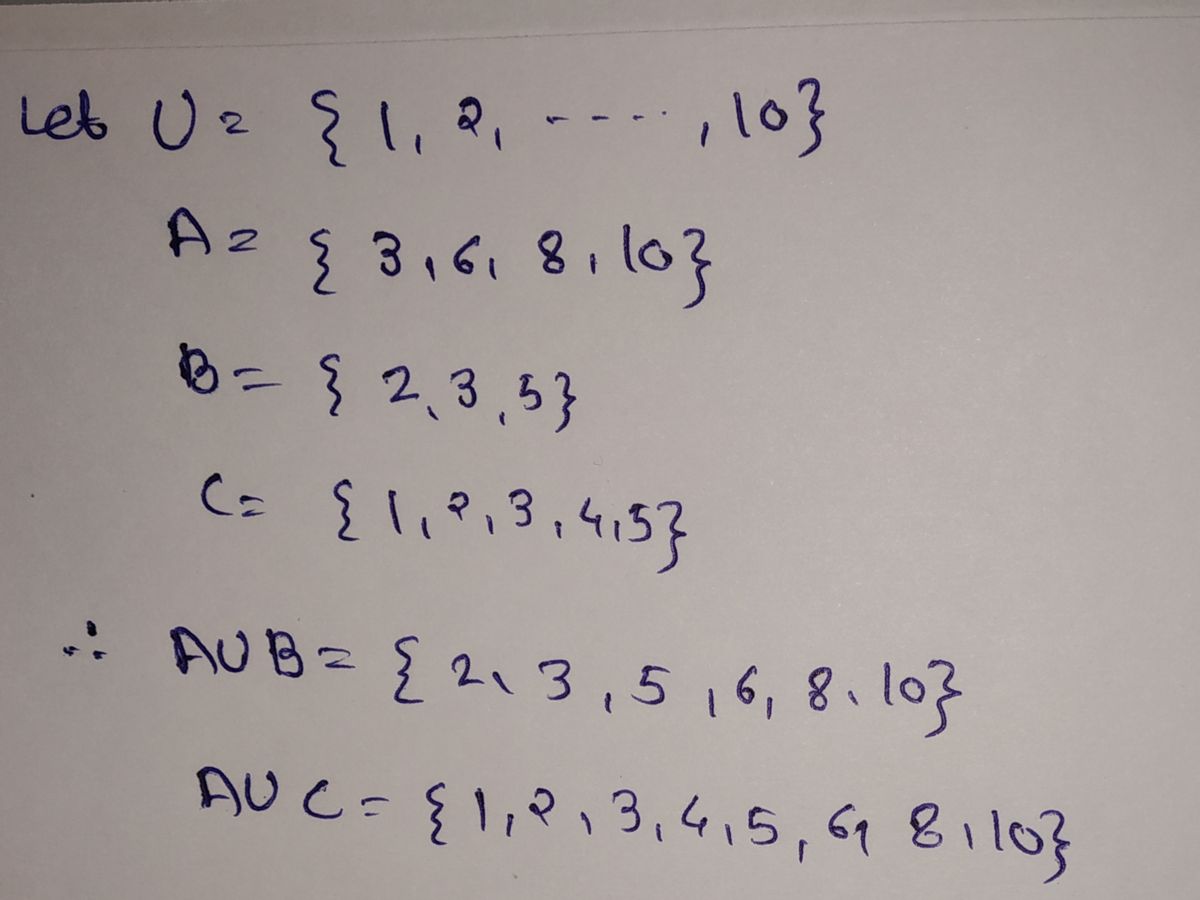 Let U = { 1, 2, ....., 10}
A = { 3, 6, 8, 10}
B = { 2, 3, 5}
C = { 1, 2, 3, 4, 5}
∴ A∪B = { 2, 3, 5, 6, 8, 10}
A∪C = { 1, 2, 3, 4, 5, 6, 8, 10}